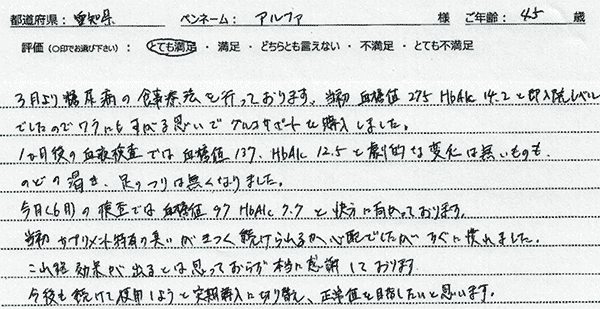 都道府県：愛知県 ペンネーム：アルファ 様 ご年齢：45 歳
評価（○印でお選び下さい）：とても満足・満足・どちらとも言えない・不満足・とても不満足
3月より糖尿病の食事療法を行っております。当初 血糖値 275 HbA1c 14.2 と即入院レベル
でしたのでワラにもすがる思いでグルコサポートを購入しました。
1か月後の血液検査では血糖値 137、HbA1c 12.5 と劇的な変化は無いものも、
のどの渇き、足のつりは無くなりました。
今月（6月）の検査では血糖値 97 HbA1c 7.7 と快方に向かっております。
当初サプリメント特有の臭いがきつく続けられるか心配でしたがすぐに慣れました。
これ程効果が出るとは思っておらず本当に感謝しております
今後も続けて使用しようと定期購入に切り替え、正常値を目指したいと思います。